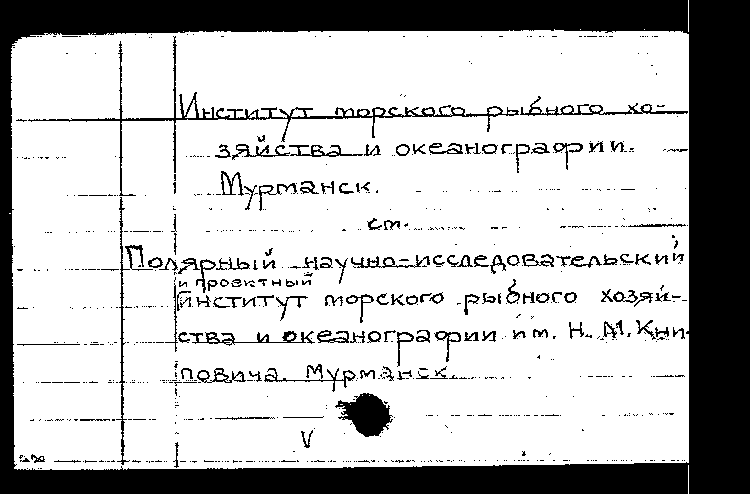 Институт морского рыбного хо-
зяйства и океанографии.
Мурманск.
см.
Полярный научно-исследовательский
и проектный
институт морского рыбного хозяй-
ства и океанографии им. Н. М. Кни-
повича. Мурманск.
V